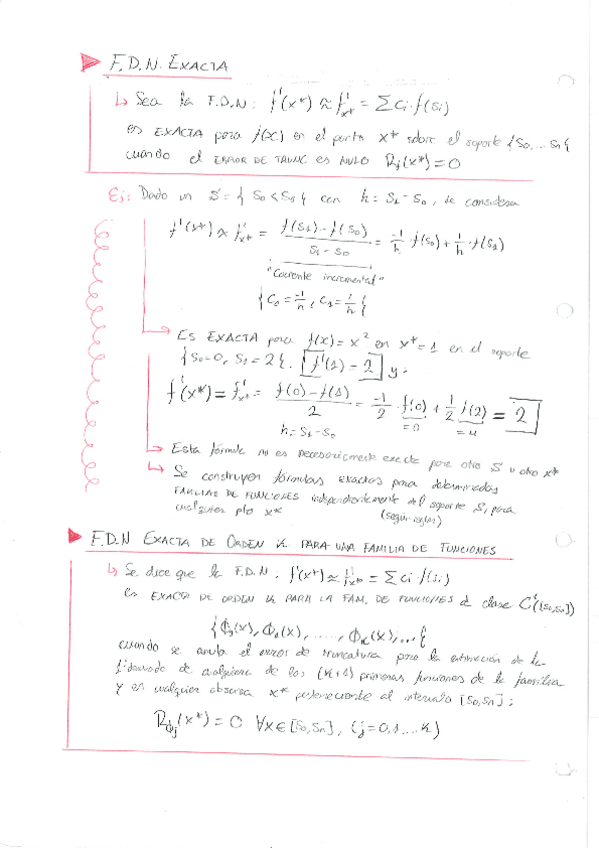 F.D.N. EXACTA
↳ Sea la F.D.N: f'(x*) ≈ f'x* = ∑ ci · f(si)
es EXACTA para f(x) en el punto x* sobre el soporte {s0, ... sn}
cuando el ERROR DE TRUNC es NULO Rf(x*) = 0
Ej: Dado un S = { s0 < s1 } con h = s1 - s0, se considera
f'(x*) ≈ f'x* = f(s1) - f(s0) / s1 - s0 = -1/h · f(s0) + 1/h · f(s1)
"Cociente incremental"
{ C0 = -1/h, C1 = 1/h }
Es EXACTA para f(x) = x² en x* = 1 en el soporte
{s0 = 0, s1 = 2}. f'(1) = 2 y:
f'(x*) = f'x* = f(0) - f(1) / 2 = -1/2 · f(0) + 1/2 f(2) = 2
h = s1 - s0 =0 =4
↳ Esta fórmula no es necesariamente exacta para otro S u otro x*
↳ Se construyen fórmulas exactas para determinadas
FAMILIAS DE FUNCIONES independientemente del soporte S, para
cualquier pto x* (según)
F.D.N EXACTA DE ORDEN K PARA UNA FAMILIA DE FUNCIONES
↳ Se dice que la F.D.N: f'(x*) ≈ f'x* = ∑ ci · f(si)
es EXACTA DE ORDEN K PARA LA FAM. DE FUNCIONES d clase C¹([s0,sn])
{ϕ0(x), ϕ1(x), ....., ϕk(x), ...}
cuando se anula el error de truncatura para la estimación de la
1ª derivada de cualquiera de las (k+1) primeras funciones de la familia
y en cualquier abscisa x* perteneciente al intervalo [s0,sn]:
Rϕj(x*) = 0 ∀x∈[s0,sn], (j=0,1...k)